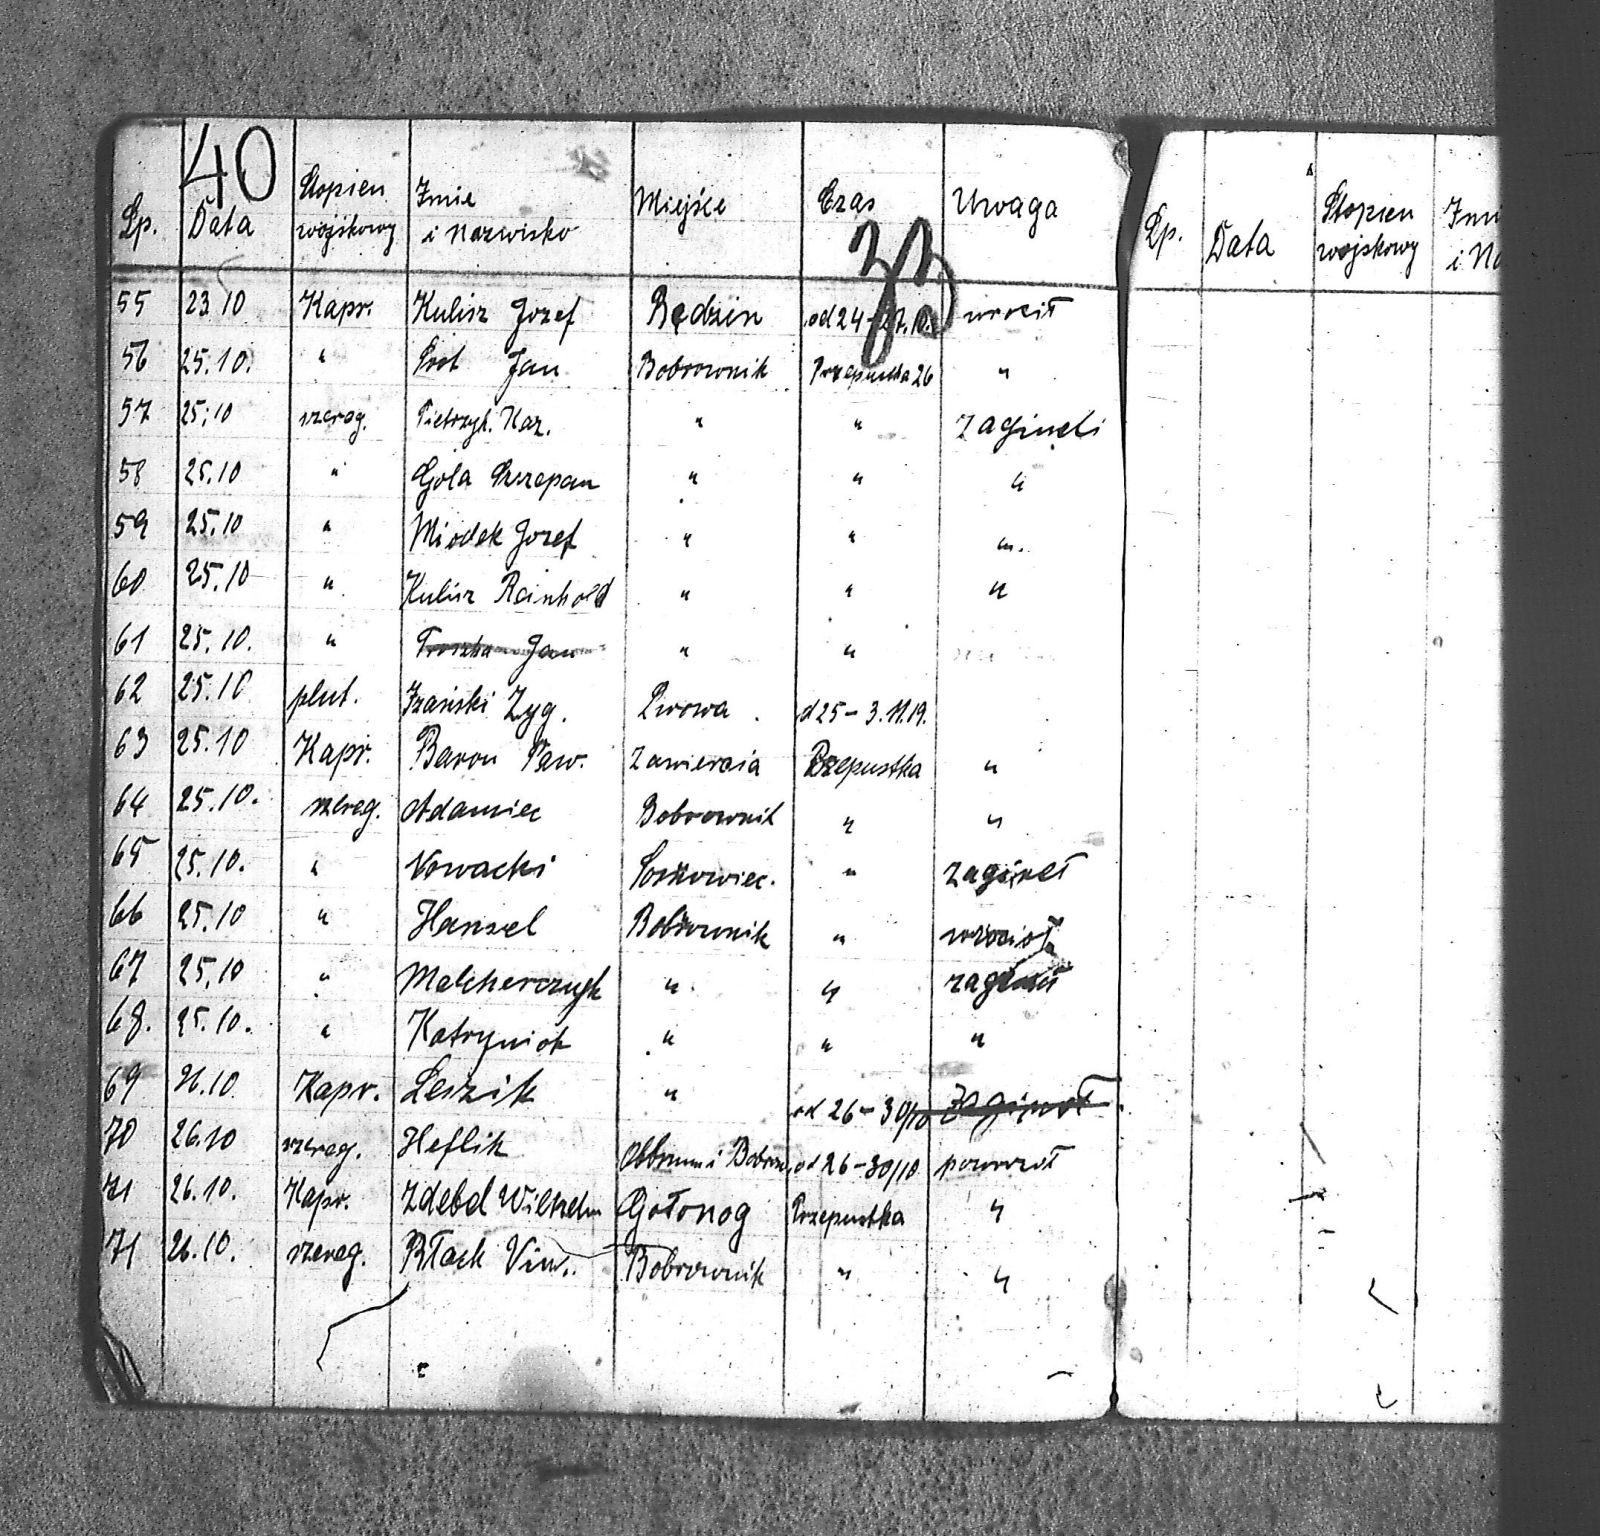 40
33
Lp. Data Stopien wojskowy Imie i Nazwisko Miejsce Czas Uwaga
55 23.10 Kapr. Kulisz Jozef Będzin od 24-27.10. wrocił
56 25.10. " Prot Jan Bobrownik Przepustka 26 "
57 25.10 szereg. Pietrzyk. Kaz. " " Zagineli
58 25.10 " Gola Szczepan " " "
59 25.10 " Miodek Jozef " " "
60 25.10 " Kulisz Reinhold " " "
61 25.10. " Jan " "
62 25.10 plut. Zyg. Lwowa . od 25-3.11.19.
63 25.10 Kapr. Baron Paw. Zawiercia Przepustka "
64 25.10. szereg. Adamiec Bobrownik " "
65 25.10. " Nowacki Sosnowiec. " zagineł
66 25.10 " Hansel Bobrownik " wrocił
67 25.10 " Melcherczyk " " zaginił
68. 25.10. " Katryniok " " "
69 26.10 Kapr. Leszik " od 26-30/10 Zaginoł
70 26.10 szereg. Heflik i Bobrow. od 26-30/10 powrocił
71 26.10. Kapr. Zdebel Wilhelm Gołonog Przepustka "
71 26.10. szereg. Błack Vin.. Bobrownik " "
Lp. Data Stopien wojskowy Imi i Na